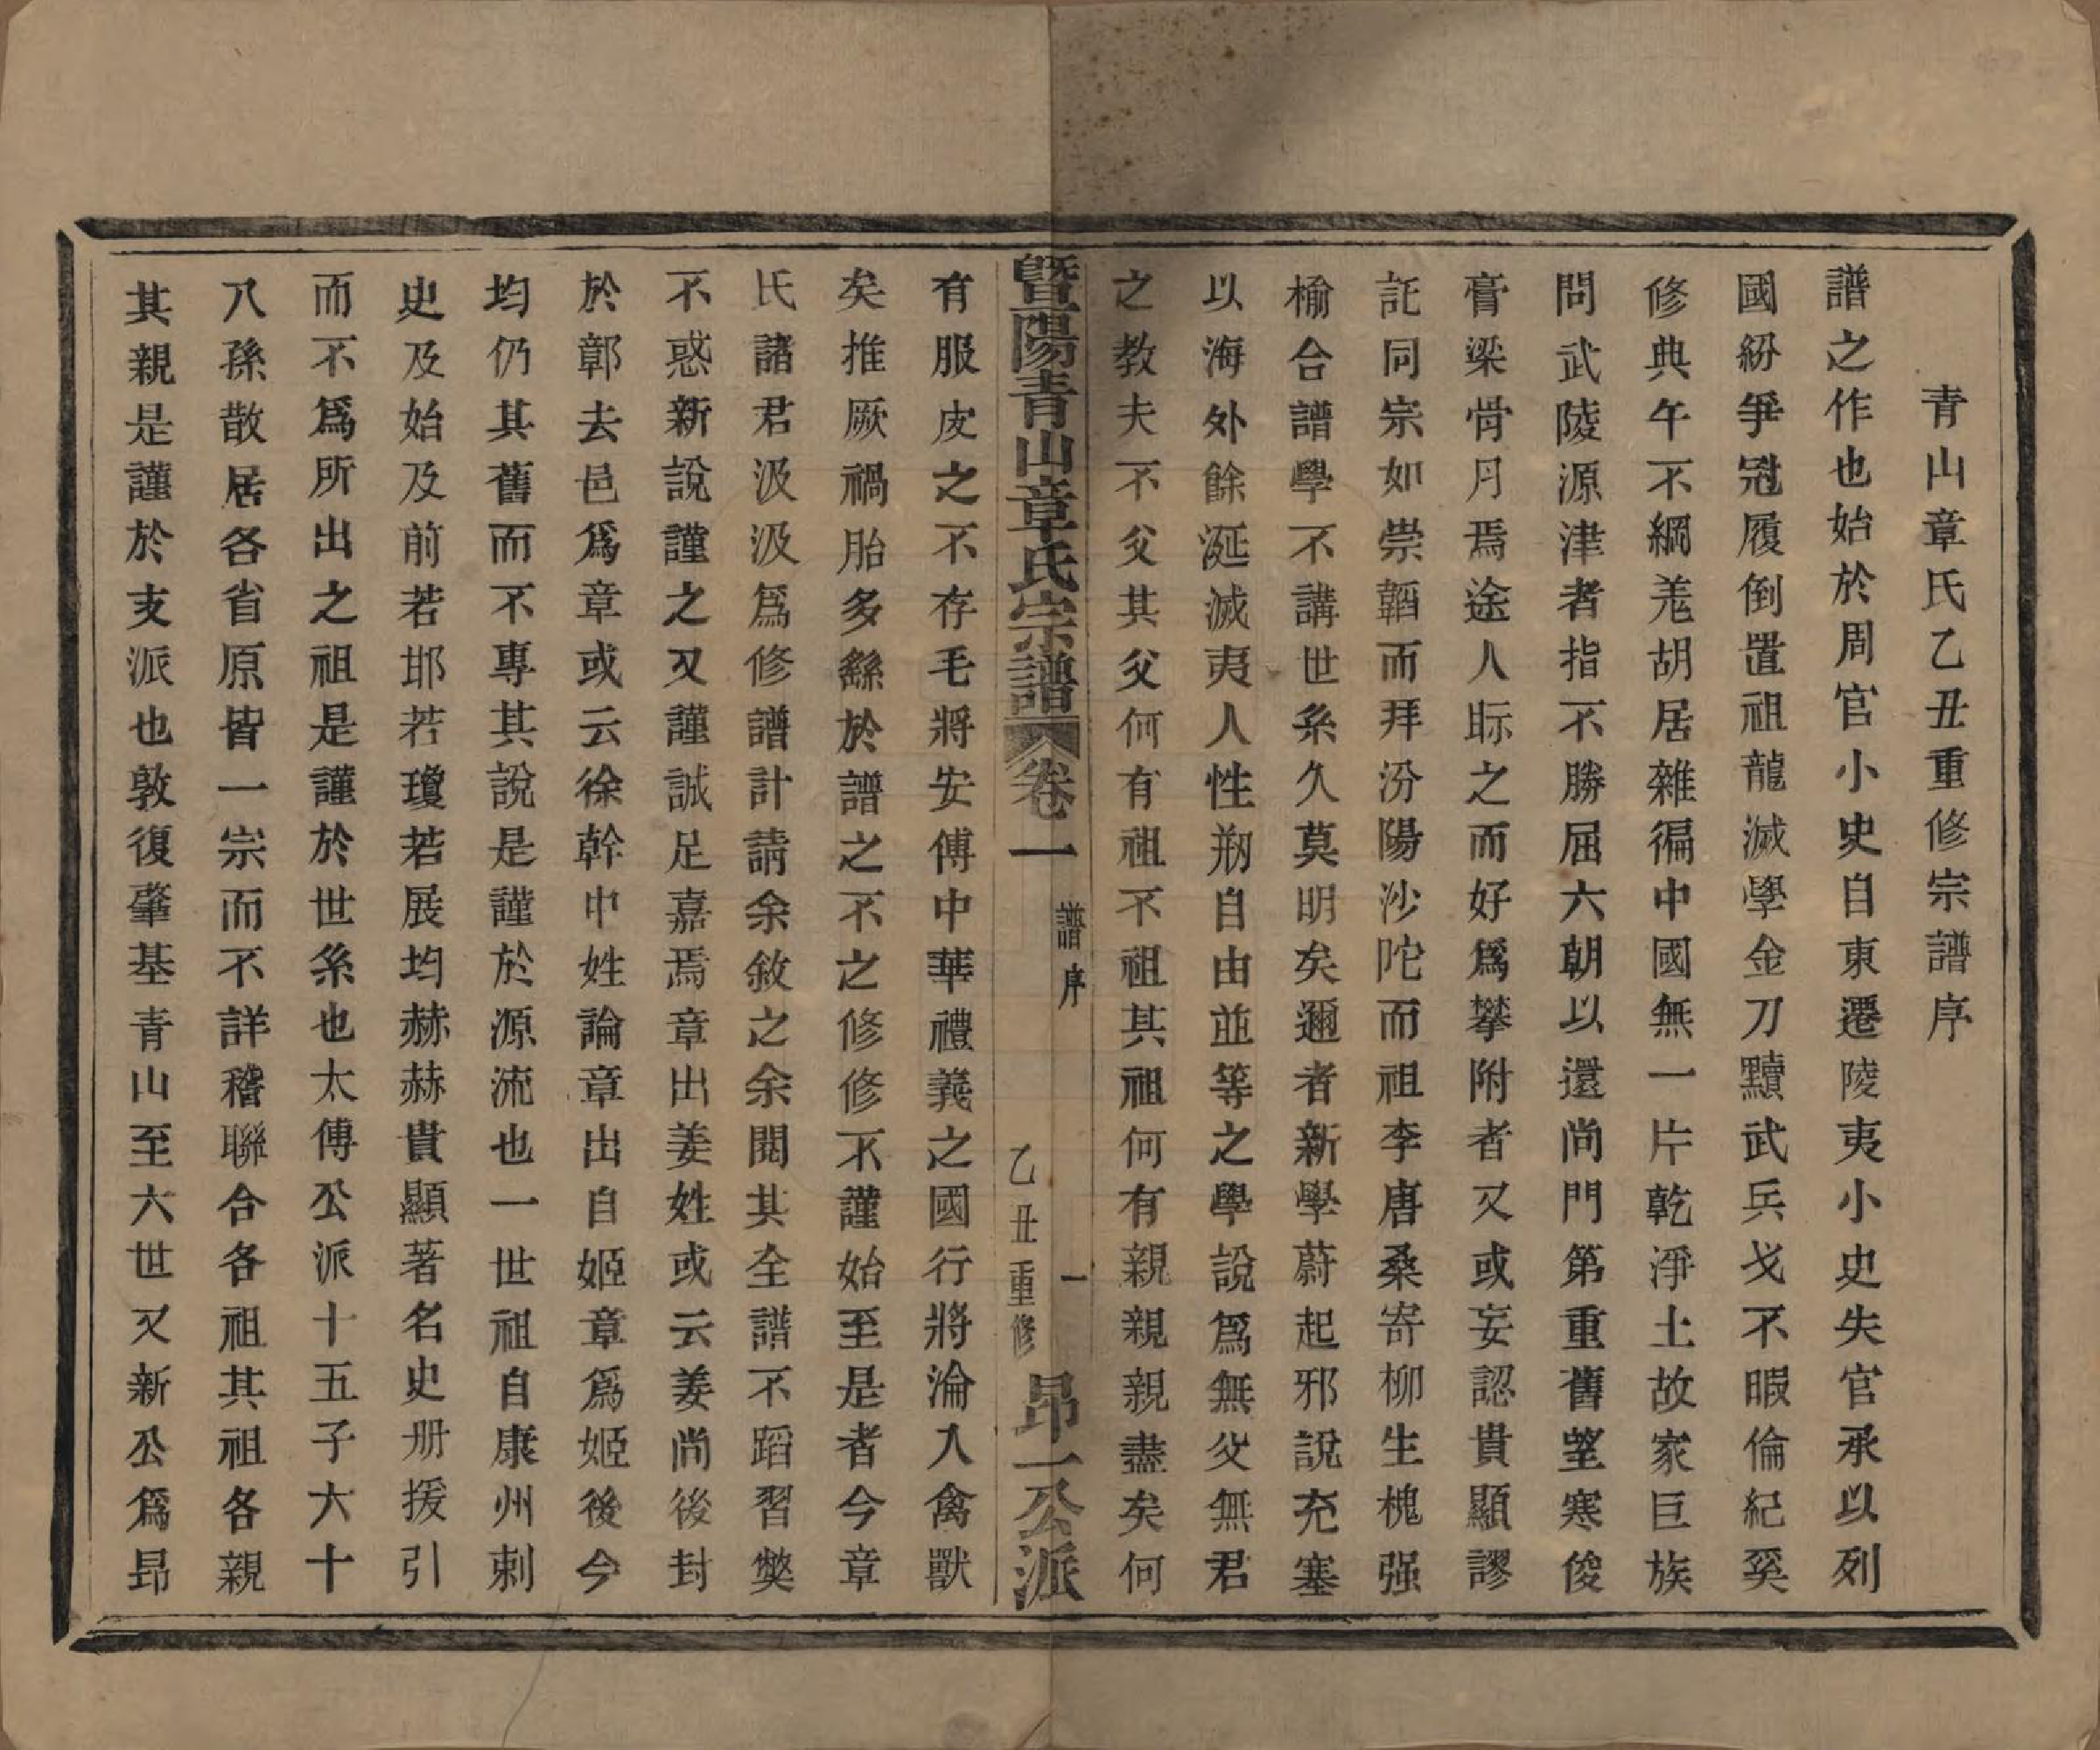 青山章氏乙丑重修宗譜序
譜之作也始於周官小史自東遷陵夷小史失官承以列
國紛爭冠履倒置祖龍滅學金刀黷武兵戈不暇倫紀奚
修典午不綱羌胡居雜徧中國無一片乾淨土故家巨族
問武陵源津者指不勝屈六朝以還尚門第重舊望寒俊
膏梁骨月焉途人眎之而好爲攀附者又或妄認貴顯謬
託同宗如崇韜而拜汾陽沙陀而祖李唐桑寄柳生槐强
榆合譜學不講世系久莫明矣邇者新學蔚起邪說充塞
以海外餘涎滅夷人性刱自由並等之學說爲無父無君
之教夫不父其父何有祖不祖其祖何有親親親盡矣何
暨陽青山章氏宗譜 卷一 譜序 一 乙丑重修 昂一公派
有服皮之不存毛將安傅中華禮義之國行將淪入禽獸
矣推厥禍胎多繇於譜之不之修修不謹始至是者今章
氏諸君汲汲爲修譜計請余敘之余閱其全譜不蹈習獘
不惑新說謹之又謹誠足嘉焉章出姜姓或云姜尚後封
於鄣去邑爲章或云徐幹中姓論章出自姬章爲姬後今
均仍其舊而不專其說是謹於源流也一世祖自康州刺
史及始及前若邯若瓊若展均赫赫貴顯著名史册援引
而不爲所出之祖是謹於世系也太傅公派十五子六十
八孫散居各省原皆一宗而不詳稽聯合各祖其祖各親
其親是謹於支派也敦復肇基青山至六世又新公爲昂